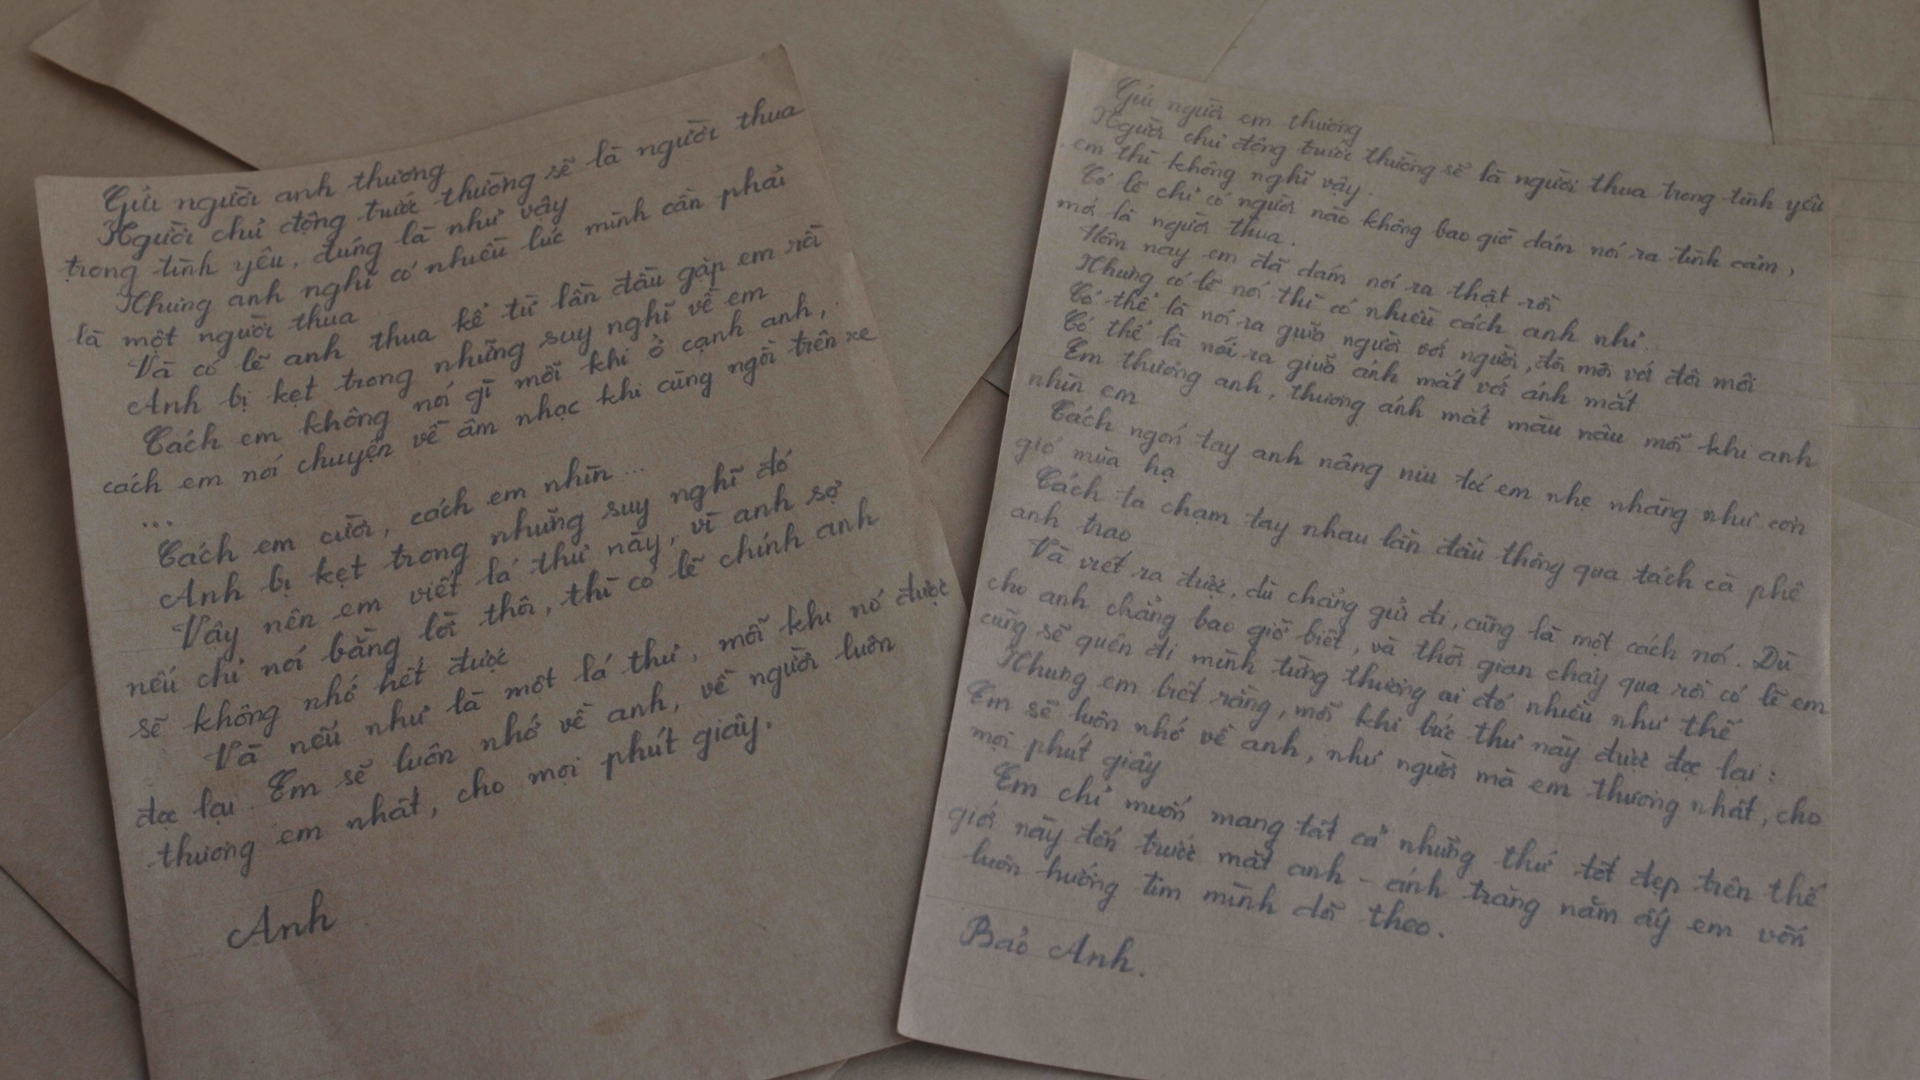 Gửi người anh thương
Người chủ động trước thường sẽ là người thua
trong tình yêu, đúng là như vậy
Nhưng anh nghĩ có nhiều lúc mình cần phải
là một người thua
Và có lẽ anh thua kể từ lần đầu gặp em rồi
Anh bị kẹt trong những suy nghĩ về em
Cách em không nói gì mỗi khi ở cạnh anh,
cách em nói chuyện về âm nhạc khi cùng ngồi trên xe
...
Cách em cười, cách em nhìn...
Anh bị kẹt trong những suy nghĩ đó
Vậy nên em viết lá thư này, vì anh sợ
nếu chỉ nói bằng lời thôi, thì có lẽ chính anh
sẽ không nhớ hết được
Và nếu như là một lá thư, mỗi khi nó được
đọc lại. Em sẽ luôn nhớ về anh, về người luôn
thương em nhất, cho mọi phút giây.
Anh
Gửi người em thương
Người chủ động trước thường sẽ là người thua trong tình yêu
em thì không nghĩ vậy.
Có lẽ chỉ có người nào không bao giờ dám nói ra tình cảm,
mới là người thua.
Hôm nay em đã dám nói ra thật rồi
Nhưng có lẽ nói thì có nhiều cách anh nhỉ..
Có thể là nói ra giữa người với người, đôi môi với đôi môi
Có thể là nói ra giữa ánh mắt với ánh mắt
Em thương anh, thương ánh mắt màu nâu mỗi khi anh
nhìn em
Cách ngón tay anh nâng niu tóc em nhẹ nhàng như cơn
gió mùa hạ
Cách ta chạm tay nhau lần đầu thông qua tách cà phê
anh trao
Và viết ra được, dù chẳng gửi đi, cũng là một cách nói. Dù
cho anh chẳng bao giờ biết, và thời gian chảy qua rồi có lẽ em
cũng sẽ quên đi mình từng thương ai đó nhiều như thế
Nhưng em biết rằng, mỗi khi bức thư này được đọc lại:
Em sẽ luôn nhớ về anh, như người mà em thương nhất, cho
mọi phút giây
Em chỉ muốn mang tất cả những thứ tốt đẹp trên thế
giới này đến trước mắt anh - ánh trăng năm ấy em vốn
luôn hướng tim mình dõi theo.
Bảo Anh.